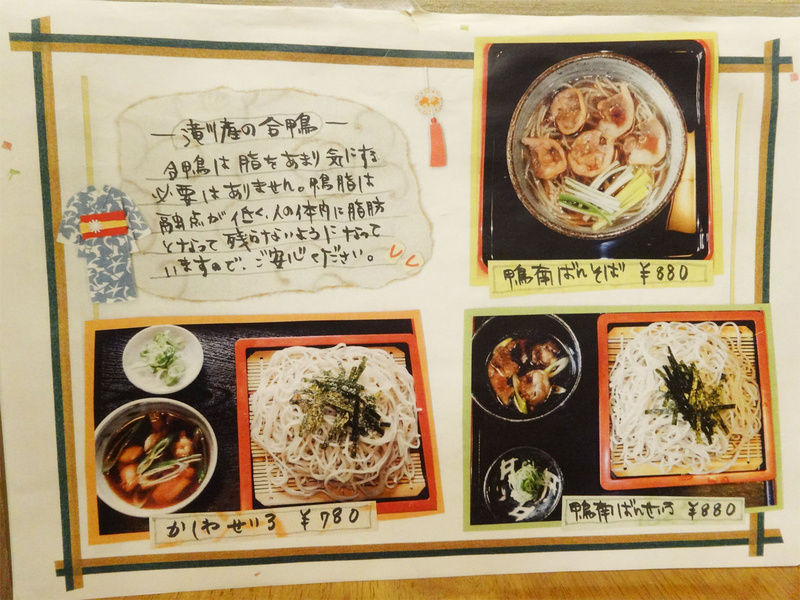 滝川産の合鴨
合鴨は脂をあまり気にする
必要はありません。鴨脂は
融点が低く、人の体内に脂肪
となって残らないようになって
いますので、ご安心ください。
鴨南ばんそば ¥880
かしわせいろ ¥780
鴨南ばんせいろ ¥880